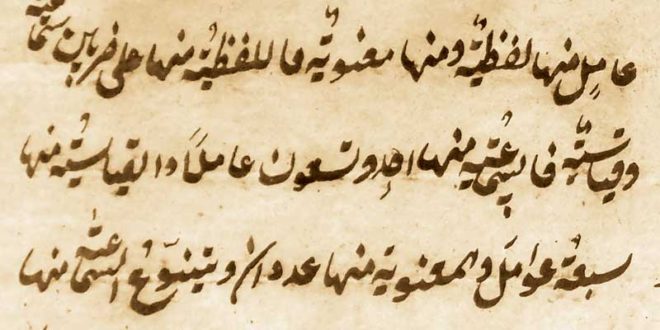 عاملٍ منها لفظيّة ومنها معنويّة فاللفظيّة منها على ضربين سماعيّة
وقياسيّة فالسماعيّة منها احد وتسعون عاملاً والقياسيّة منها
سبعة عوامل والمعنوية منها عددان ويتنوّع السماعيّة منها